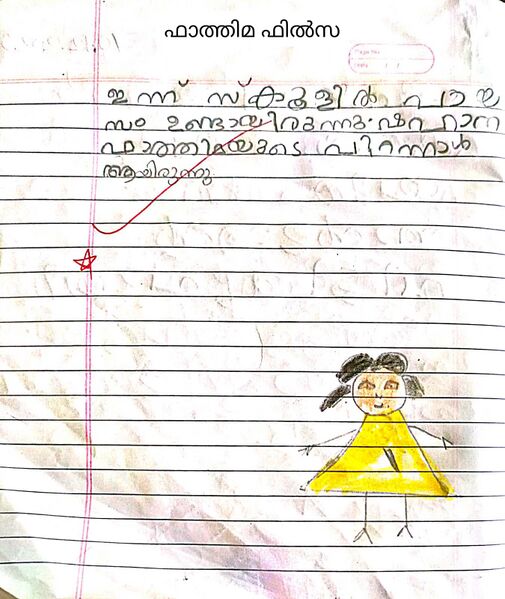 ഫാത്തിമ ഫിൽസ
ഇന്ന് സ്കൂളിൽ പായ
സം ഉണ്ടായിരുന്നു. ഷഹാന
ഫാത്തിമയുടെ പിറന്നാൾ
ആയിരുന്നു